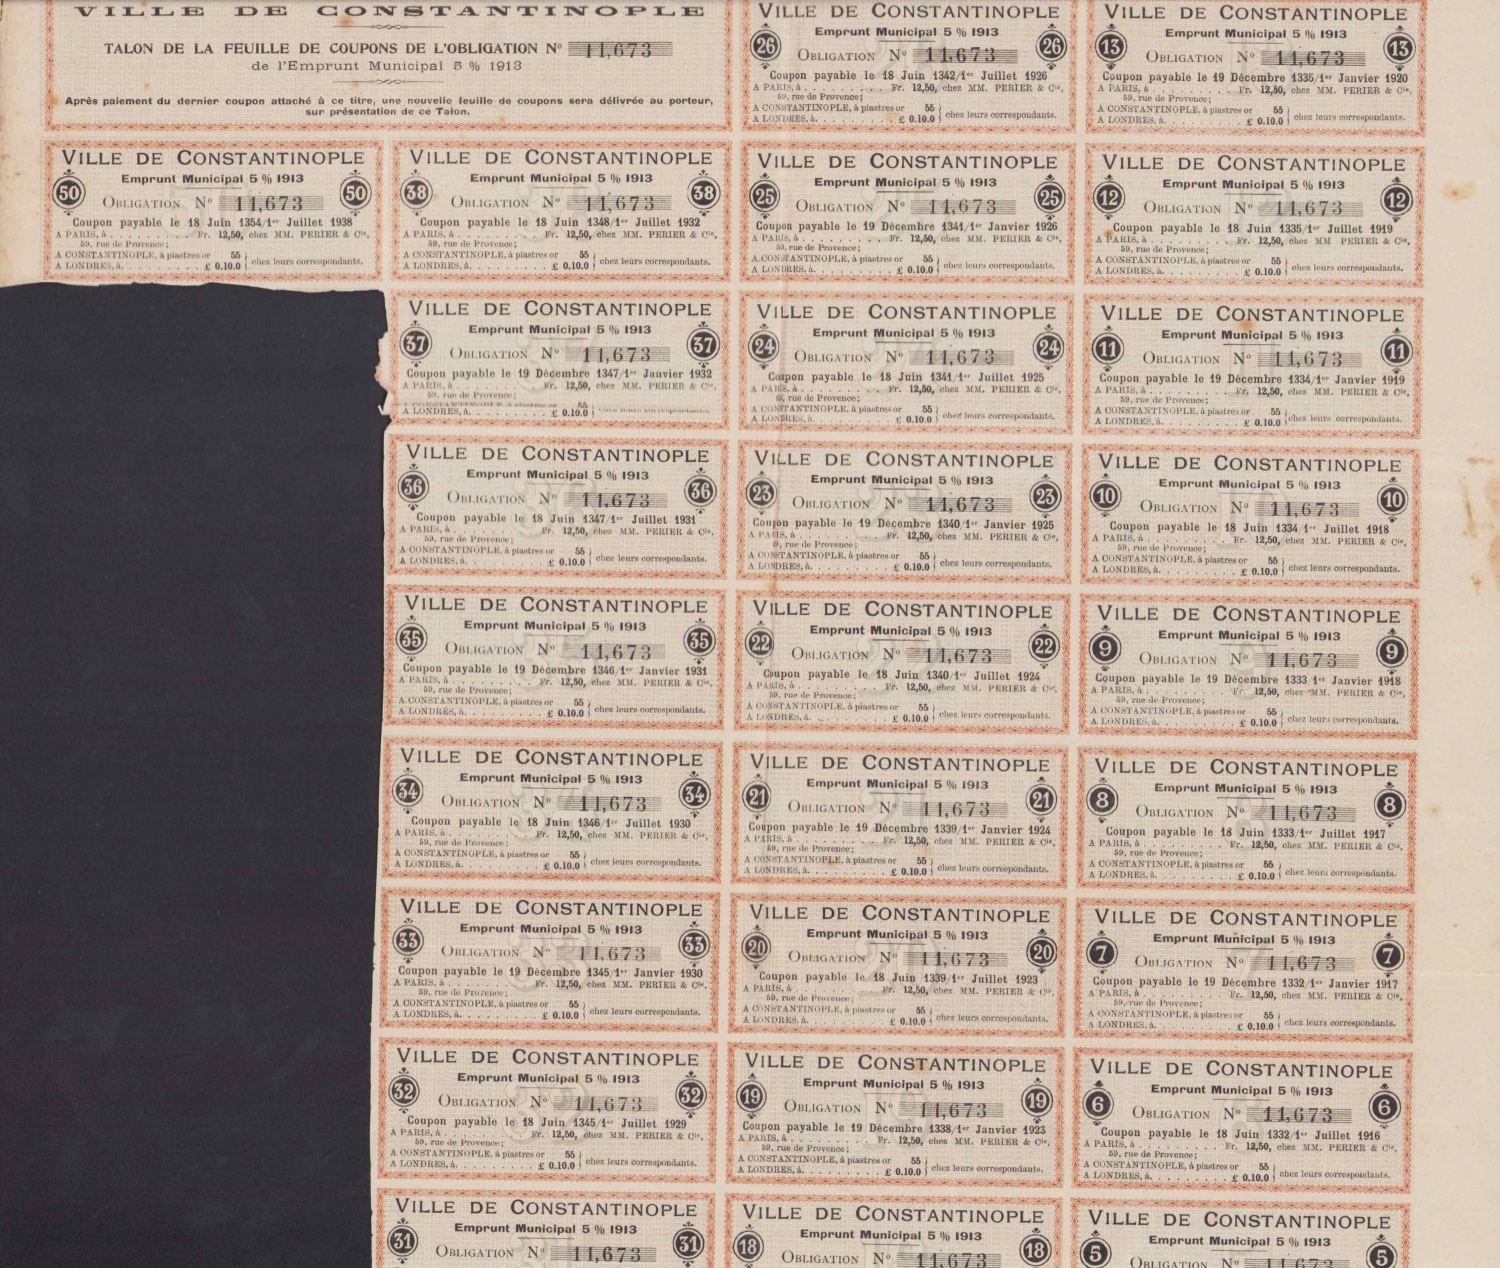 VILLE DE CONSTANTINOPLE
TALON DE LA FEUILLE DE COUPONS DE L'OBLIGATION Nº 11,673
de l'Emprunt Municipal 5 % 1913
Après paiement du dernier coupon attaché à ce titre, une nouvelle feuille de coupons sera délivrée au porteur,
sur présentation de ce Talon.
VILLE DE CONSTANTINOPLE
Emprunt Municipal 5 % 1913
26 OBLIGATION Nº 11,673 26
Coupon payable le 18 Juin 1342/1er Juillet 1926
A PARIS, à . . . . . . . . . Fr. 12,50, chez MM. PERIER & Cie,
59, rue de Provence;
A CONSTANTINOPLE, à piastres or 55
A LONDRES, à. . . . . . . . . £ 0.10.0 } chez leurs correspondants.
VILLE DE CONSTANTINOPLE
Emprunt Municipal 5 % 1913
13 OBLIGATION Nº 11,673 13
Coupon payable le 19 Décembre 1335/1er Janvier 1920
A PARIS, à . . . . . . . . . Fr. 12,50, chez MM. PERIER & Cie,
59, rue de Provence;
A CONSTANTINOPLE, à piastres or 55
A LONDRES, à. . . . . . . . . £ 0.10.0 } chez leurs correspondants.
VILLE DE CONSTANTINOPLE
Emprunt Municipal 5 % 1913
50 OBLIGATION Nº 11,673 50
Coupon payable le 18 Juin 1354/1er Juillet 1938
A PARIS, à . . . . . . . . . Fr. 12,50, chez MM. PERIER & Cie,
59, rue de Provence;
A CONSTANTINOPLE, à piastres or 55
A LONDRES, à. . . . . . . . . £ 0.10.0 } chez leurs correspondants.
VILLE DE CONSTANTINOPLE
Emprunt Municipal 5 % 1913
38 OBLIGATION Nº 11,673 38
Coupon payable le 18 Juin 1348/1er Juillet 1932
A PARIS, à . . . . . . . . . Fr. 12,50, chez MM. PERIER & Cie,
59, rue de Provence;
A CONSTANTINOPLE, à piastres or 55
A LONDRES, à. . . . . . . . . £ 0.10.0 } chez leurs correspondants.
VILLE DE CONSTANTINOPLE
Emprunt Municipal 5 % 1913
25 OBLIGATION Nº 11,673 25
Coupon payable le 19 Décembre 1341/1er Janvier 1926
A PARIS, à . . . . . . . . . Fr. 12,50, chez MM. PERIER & Cie,
59, rue de Provence;
A CONSTANTINOPLE, à piastres or 55
A LONDRES, à. . . . . . . . . £ 0.10.0 } chez leurs correspondants.
VILLE DE CONSTANTINOPLE
Emprunt Municipal 5 % 1913
12 OBLIGATION Nº 11,673 12
Coupon payable le 18 Juin 1335/1er Juillet 1919
A PARIS, à . . . . . . . . . Fr. 12,50, chez MM PERIER & Cie,
59, rue de Provence;
A CONSTANTINOPLE, à piastres or 55
A LONDRES, à. . . . . . . . . £ 0.10.0 } chez leurs correspondants.
VILLE DE CONSTANTINOPLE
Emprunt Municipal 5 % 1913
37 OBLIGATION Nº 11,673 37
Coupon payable le 19 Décembre 1347/1er Janvier 1932
A PARIS, à . . . . . . . . . Fr. 12,50, chez MM. PERIER & Cie,
59, rue de Provence;
A LONDRES, à. . . . . . . . . £ 0.10.0
VILLE DE CONSTANTINOPLE
Emprunt Municipal 5 % 1913
24 OBLIGATION Nº 11,673 24
Coupon payable le 18 Juin 1341/1er Juillet 1925
A PARIS, à . . . . . . . . . Fr. 12,50, chez MM. PERIER & Cie,
59, rue de Provence;
A CONSTANTINOPLE, à piastres or 55
A LONDRES, à. . . . . . . . . £ 0.10.0 } chez leurs correspondants.
VILLE DE CONSTANTINOPLE
Emprunt Municipal 5 % 1913
11 OBLIGATION Nº 11,673 11
Coupon payable le 19 Décembre 1334/1er Janvier 1919
A PARIS, à . . . . . . . . . Fr. 12,50, chez MM. PERIER & Cie,
59, rue de Provence;
A CONSTANTINOPLE, à piastres or 55
A LONDRES, à. . . . . . . . . £ 0.10.0 } chez leurs correspondants.
VILLE DE CONSTANTINOPLE
Emprunt Municipal 5 % 1913
36 OBLIGATION Nº 11,673 36
Coupon payable le 18 Juin 1347/1er Juillet 1931
A PARIS, à . . . . . . . . . Fr. 12,50, chez MM. PERIER & Cie,
59, rue de Provence;
A CONSTANTINOPLE, à piastres or 55
A LONDRES, à. . . . . . . . . £ 0.10.0 } chez leurs correspondants.
VILLE DE CONSTANTINOPLE
Emprunt Municipal 5 % 1913
23 OBLIGATION Nº 11,673 23
Coupon payable le 19 Décembre 1340/1er Janvier 1925
A PARIS, à . . . . . . . . . Fr. 12,50, chez MM. PERIER & Cie,
59, rue de Provence;
A CONSTANTINOPLE, à piastres or 55
A LONDRES, à. . . . . . . . . £ 0.10.0 } chez leurs correspondants.
VILLE DE CONSTANTINOPLE
Emprunt Municipal 5 % 1913
10 OBLIGATION Nº 11,673 10
Coupon payable le 18 Juin 1334/1er Juillet 1918
A PARIS, à . . . . . . . . . Fr. 12,50, chez MM. PERIER & Cie,
59, rue de Provence;
A CONSTANTINOPLE, à piastres or 55
A LONDRES, à. . . . . . . . . £ 0.10.0 } chez leurs correspondants.
VILLE DE CONSTANTINOPLE
Emprunt Municipal 5 % 1913
35 OBLIGATION Nº 11,673 35
Coupon payable le 19 Décembre 1346/1er Janvier 1931
A PARIS, à . . . . . . . . . Fr. 12,50, chez MM. PERIER & Cie,
59, rue de Provence;
A CONSTANTINOPLE, à piastres or 55
A LONDRES, à. . . . . . . . . £ 0.10.0 } chez leurs correspondants.
VILLE DE CONSTANTINOPLE
Emprunt Municipal 5 % 1913
22 OBLIGATION Nº 11,673 22
Coupon payable le 18 Juin 1340/1er Juillet 1924
A PARIS, à . . . . . . . . . Fr. 12,50, chez MM. PERIER & Cie,
59, rue de Provence;
A CONSTANTINOPLE, à piastres or 55
A LONDRES, à. . . . . . . . . £ 0.10.0 } chez leurs correspondants.
VILLE DE CONSTANTINOPLE
Emprunt Municipal 5 % 1913
9 OBLIGATION Nº 11,673 9
Coupon payable le 19 Décembre 1333/1er Janvier 1918
A PARIS, à . . . . . . . . . Fr. 12,50, chez MM. PERIER & Cie,
59, rue de Provence;
A CONSTANTINOPLE, à piastres or 55
A LONDRES, à. . . . . . . . . £ 0.10.0 } chez leurs correspondants.
VILLE DE CONSTANTINOPLE
Emprunt Municipal 5 % 1913
34 OBLIGATION Nº 11,673 34
Coupon payable le 18 Juin 1346/1er Juillet 1930
A PARIS, à . . . . . . . . . Fr. 12,50, chez MM. PERIER & Cie,
59, rue de Provence;
A CONSTANTINOPLE, à piastres or 55
A LONDRES, à. . . . . . . . . £ 0.10.0 } chez leurs correspondants.
VILLE DE CONSTANTINOPLE
Emprunt Municipal 5 % 1913
21 OBLIGATION Nº 11,673 21
Coupon payable le 19 Décembre 1339/1er Janvier 1924
A PARIS, à . . . . . . . . . Fr. 12,50, chez MM. PERIER & Cie,
59, rue de Provence;
A CONSTANTINOPLE, à piastres or 55
A LONDRES, à. . . . . . . . . £ 0.10.0 } chez leurs correspondants.
VILLE DE CONSTANTINOPLE
Emprunt Municipal 5 % 1913
8 OBLIGATION Nº 11,673 8
Coupon payable le 18 Juin 1333/1er Juillet 1917
A PARIS, à . . . . . . . . . Fr. 12,50, chez MM. PERIER & Cie,
59, rue de Provence;
A CONSTANTINOPLE, à piastres or 55
A LONDRES, à. . . . . . . . . £ 0.10.0 } chez leurs correspondants.
VILLE DE CONSTANTINOPLE
Emprunt Municipal 5 % 1913
33 OBLIGATION Nº 11,673 33
Coupon payable le 19 Décembre 1345/1er Janvier 1930
A PARIS, à . . . . . . . . . Fr. 12,50, chez MM. PERIER & Cie,
59, rue de Provence;
A CONSTANTINOPLE, à piastres or 55
A LONDRES, à. . . . . . . . . £ 0.10.0 } chez leurs correspondants.
VILLE DE CONSTANTINOPLE
Emprunt Municipal 5 % 1913
20 OBLIGATION Nº 11,673 20
Coupon payable le 18 Juin 1339/1er Juillet 1923
A PARIS, à . . . . . . . . . Fr. 12,50, chez MM. PERIER & Cie,
59, rue de Provence;
A CONSTANTINOPLE, à piastres or 55
A LONDRES, à. . . . . . . . . £ 0.10.0 } chez leurs correspondants.
VILLE DE CONSTANTINOPLE
Emprunt Municipal 5 % 1913
7 OBLIGATION Nº 11,673 7
Coupon payable le 19 Décembre 1332/1er Janvier 1917
A PARIS, à . . . . . . . . . Fr. 12,50, chez MM. PERIER & Cie,
59, rue de Provence;
A CONSTANTINOPLE, à piastres or 55
A LONDRES, à. . . . . . . . . £ 0.10.0 } chez leurs correspondants.
VILLE DE CONSTANTINOPLE
Emprunt Municipal 5 % 1913
32 OBLIGATION Nº 11,673 32
Coupon payable le 18 Juin 1345/1er Juillet 1929
A PARIS, à . . . . . . . . . Fr. 12,50, chez MM. PERIER & Cie,
59, rue de Provence;
A CONSTANTINOPLE, à piastres or 55
A LONDRES, à. . . . . . . . . £ 0.10.0 } chez leurs correspondants.
VILLE DE CONSTANTINOPLE
Emprunt Municipal 5 % 1913
19 OBLIGATION Nº 11,673 19
Coupon payable le 19 Décembre 1338/1er Janvier 1923
A PARIS, à . . . . . . . . . Fr. 12,50, chez MM. PERIER & Cie,
59, rue de Provence;
A CONSTANTINOPLE, à piastres or 55
A LONDRES, à. . . . . . . . . £ 0.10.0 } chez leurs correspondants.
VILLE DE CONSTANTINOPLE
Emprunt Municipal 5 % 1913
6 OBLIGATION Nº 11,673 6
Coupon payable le 18 Juin 1332/1er Juillet 1916
A PARIS, à . . . . . . . . . Fr. 12,50, chez MM. PERIER & Cie,
59, rue de Provence;
A CONSTANTINOPLE, à piastres or 55
A LONDRES, à. . . . . . . . . £ 0.10.0 } chez leurs correspondants.
VILLE DE CONSTANTINOPLE
Emprunt Municipal 5 % 1913
31 OBLIGATION Nº 11,673 31
VILLE DE CONSTANTINOPLE
Emprunt Municipal 5 % 1913
18 OBLIGATION Nº 11,673 18
VILLE DE CONSTANTINOPLE
Emprunt Municipal 5 % 1913
5 OBLIGATION Nº 11,673 5